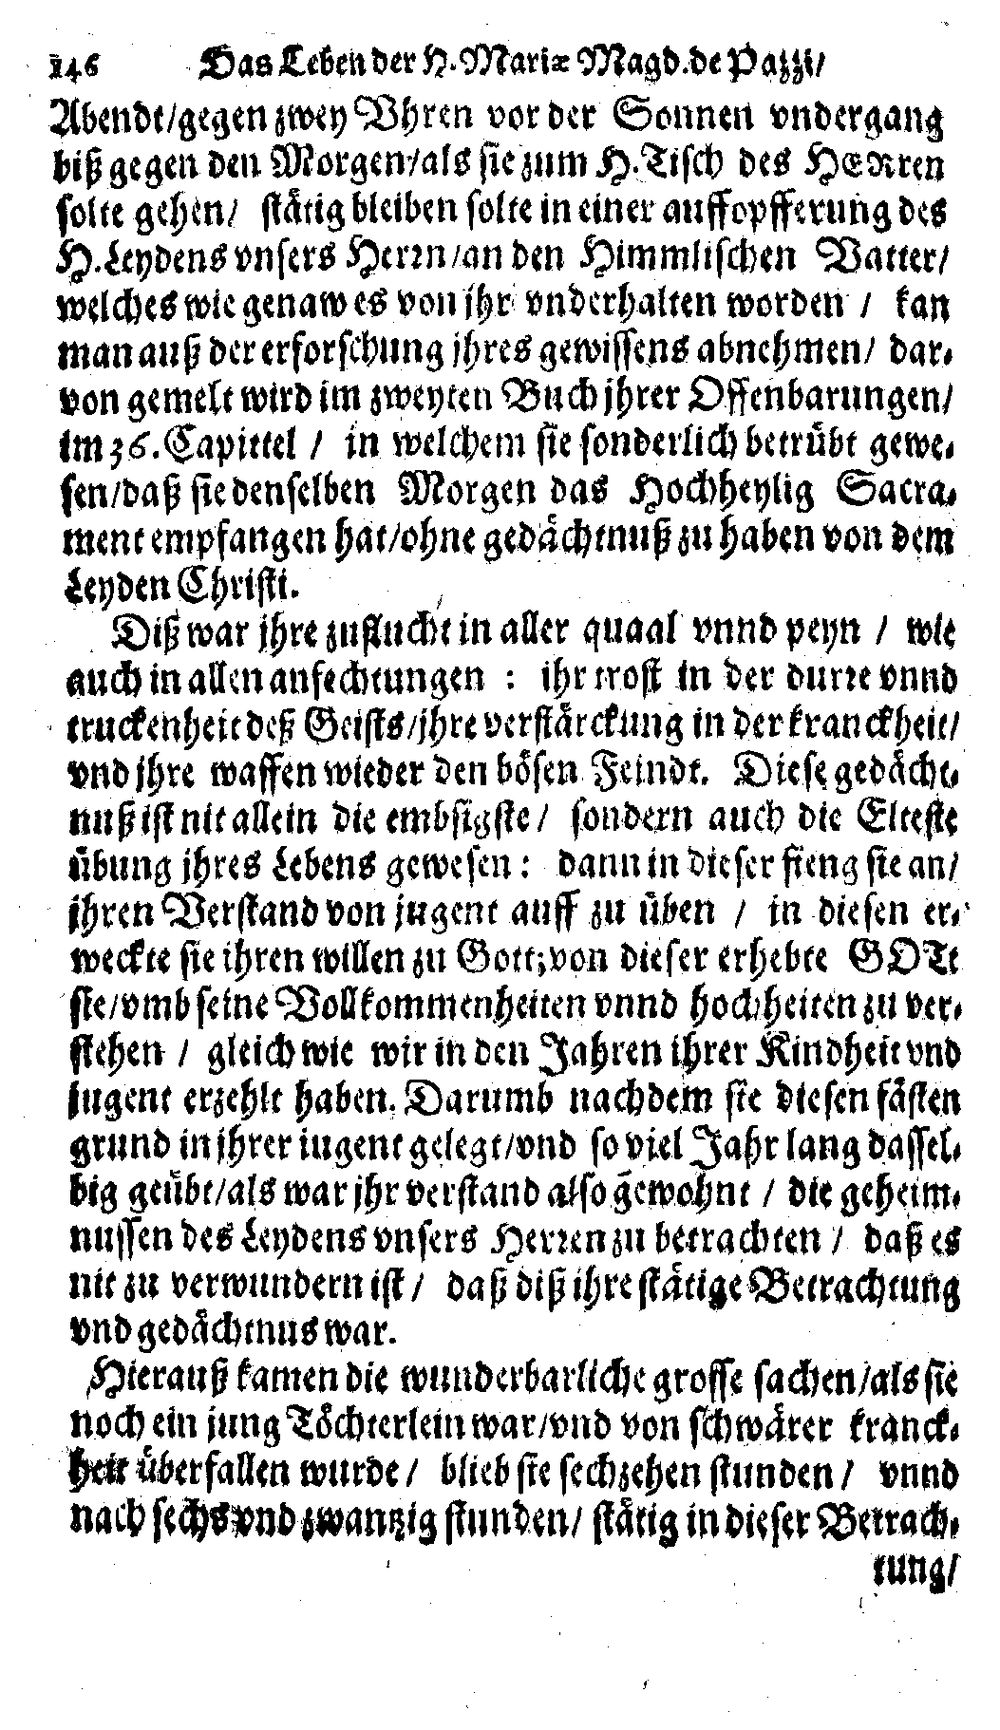 146 Das Leben der H. Mariæ Magd. de Pazzi/
Abendt/gegen zwey Vhren vor der Sonnen vndergang
biß gegen den Morgen/als sie zum H. Tisch des HERren
solte gehen/ stätig bleiben solte in einer auffopfferung des
H. Leydens vnsers Herrn/an den Himmlischen Vatter/
welches wie genaw es von jhr vnderhalten worden / kan
man auß der erforschung jhres gewissens abnehmen/ dar-
von gemelt wird im zweyten Buch jhrer Offenbarungen/
im 36. Capittel / in welchem sie sonderlich betrübt gewe-
sen/daß sie denselben Morgen das Hochheylig Sacra-
ment empfangen hat/ohne gedächtnuß zu haben von dem
Leyden Christi.
Diß war jhre zuflucht in aller quaal vnnd peyn / wie
auch in allen anfechtungen : ihr trost in der durre vnnd
truckenheit deß Geists/jhre verstärckung in der kranckheit/
vnd jhre waffen wieder den bösen Feindt. Diese gedächt-
nuß ist nit allein die embsigste/ sondern auch die Elteste
übung jhres Lebens gewesen: dann in dieser fieng sie an/
jhren Verstand von jugent auff zu üben / in diesen er-
weckte sie ihren willen zu Gott; von dieser erhebte GOTt
sie/vmb seine Vollkommenheiten vnnd hochheiten zu ver-
stehen / gleich wie wir in den Jahren ihrer Kindheit vnd
jugent erzehlt haben. Darumb nachdem sie diesen fästen
grund in jhrer iugent gelegt/vnd so viel Jahr lang dassel-
big geübt/als war jhr verstand also gewohnt / die geheim-
nussen des Leydens vnsers Herren zu betrachten / daß es
nit zu verwundern ist / daß diß ihre stätige Betrachtung
vnd gedächtnus war.
Hierauß kamen die wunderbarliche grosse sachen/als sie
noch ein jung Töchterlein war/vnd von schwärer kranck-
heit überfallen wurde / blieb sie sechzehen stunden / vnnd
nach sechs vnd zwantzig stunden/ stätig in dieser Betrach-
tung/